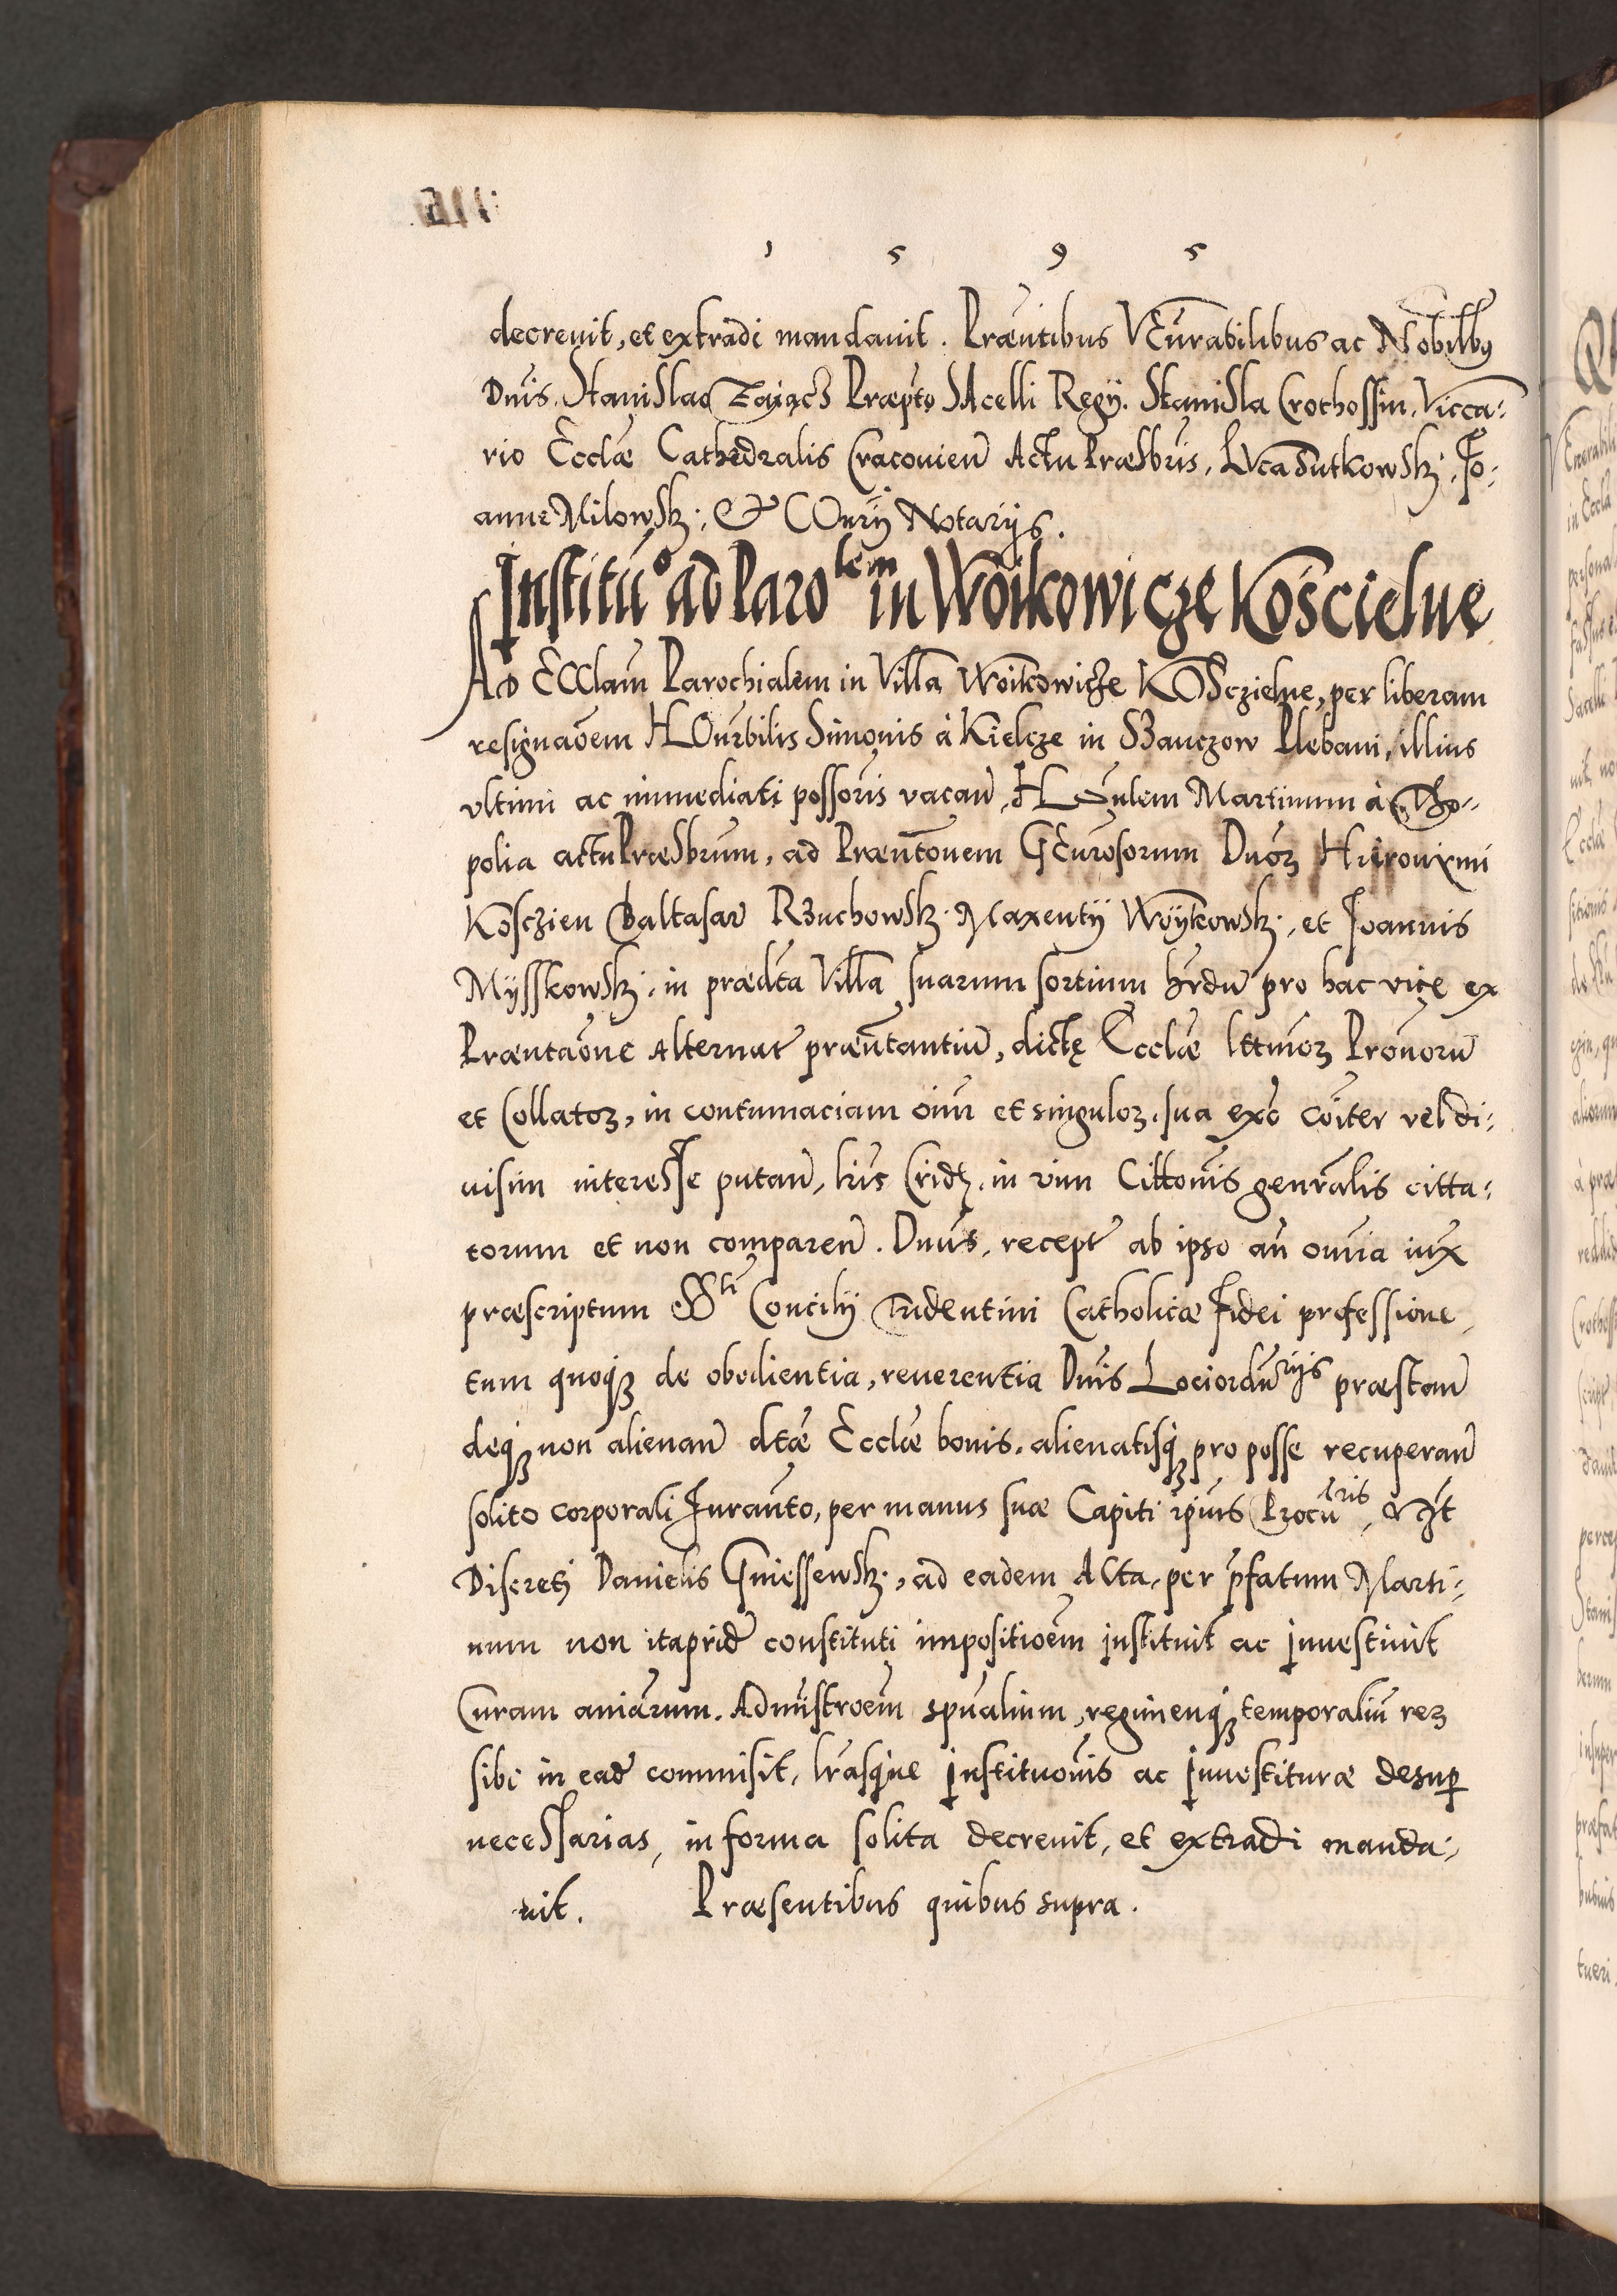 1 5 9 5
decreuit, et extradi mandauit. Præntibus Venrabilibus ac Nobilibus
Dnis. Stanislao Zaiącz Præpto SAcelli Regij. Stanisla Crothossin. Vicca-
rio Ecclæ Cathedralis Cracouien Actu Præsbris, Luca Dutkowsk., Jo-
anne Milowsk., & COnrij Notarijs.
Institu⁰ ad Paro^lem in Woikowicze Koscielne
AD ECClam Parochialem in Villa Woikowicze KOSczielne, per liberam
resignaoem HOnrbilis Simonis à Kielcze in SBanczow Plebani, illius
vltimi ac immediati possoris vacan, HOnlem Martinum à Tho-
polia actu Præsbrum, ad Præntonem GEnrosorum Dnoꝝ Hieronimi
Kosczien Baltasar Rzuchowsk. Maxentij Woykowsk., et Joannis
Mysskowsk. in prædcta Villa suarum sortium hærdu pro hac vice ex
Præntaone Alternat præntantiu, dictę Ecclæ lttmoꝝ Pronoru
et Collatoꝝ, in contumaciam oium et singuloꝝ. sua exo coiter vel di-
uisim interesse putan, lris Cridꝫ. in vim Cittonis genralis citta-
torum et non comparen. Dnus, recept ab ipso an omnia iux
præscriptum SS^ti Concilij Tridentini Catholicæ Fidei professione,
tum quoqꝫ de obedientia, reuerentia Dnis Lociordu^rijs præstan
deqꝫ non alienan dctæ Ecclæ bonis. alienatisqꝫ pro posse recuperan
solito corporali Juranto, per manus suæ Capiti ipius Procu^tris, vtt
Discreti Danielis Gniessewsk., ad eadem Acta, per pfatum Marti-
num non itaprid constituti impositioem instituit ac inuestiuit
Curam aniarum. Admistroem spualium, regimenqꝫ temporaliu reꝝ
sibi in ead commisit, lrasque institutionis ac inuestituræ desup
necessarias, in forma solita decreuit, et extradi manda-
uit. Præsentibus quibus supra.